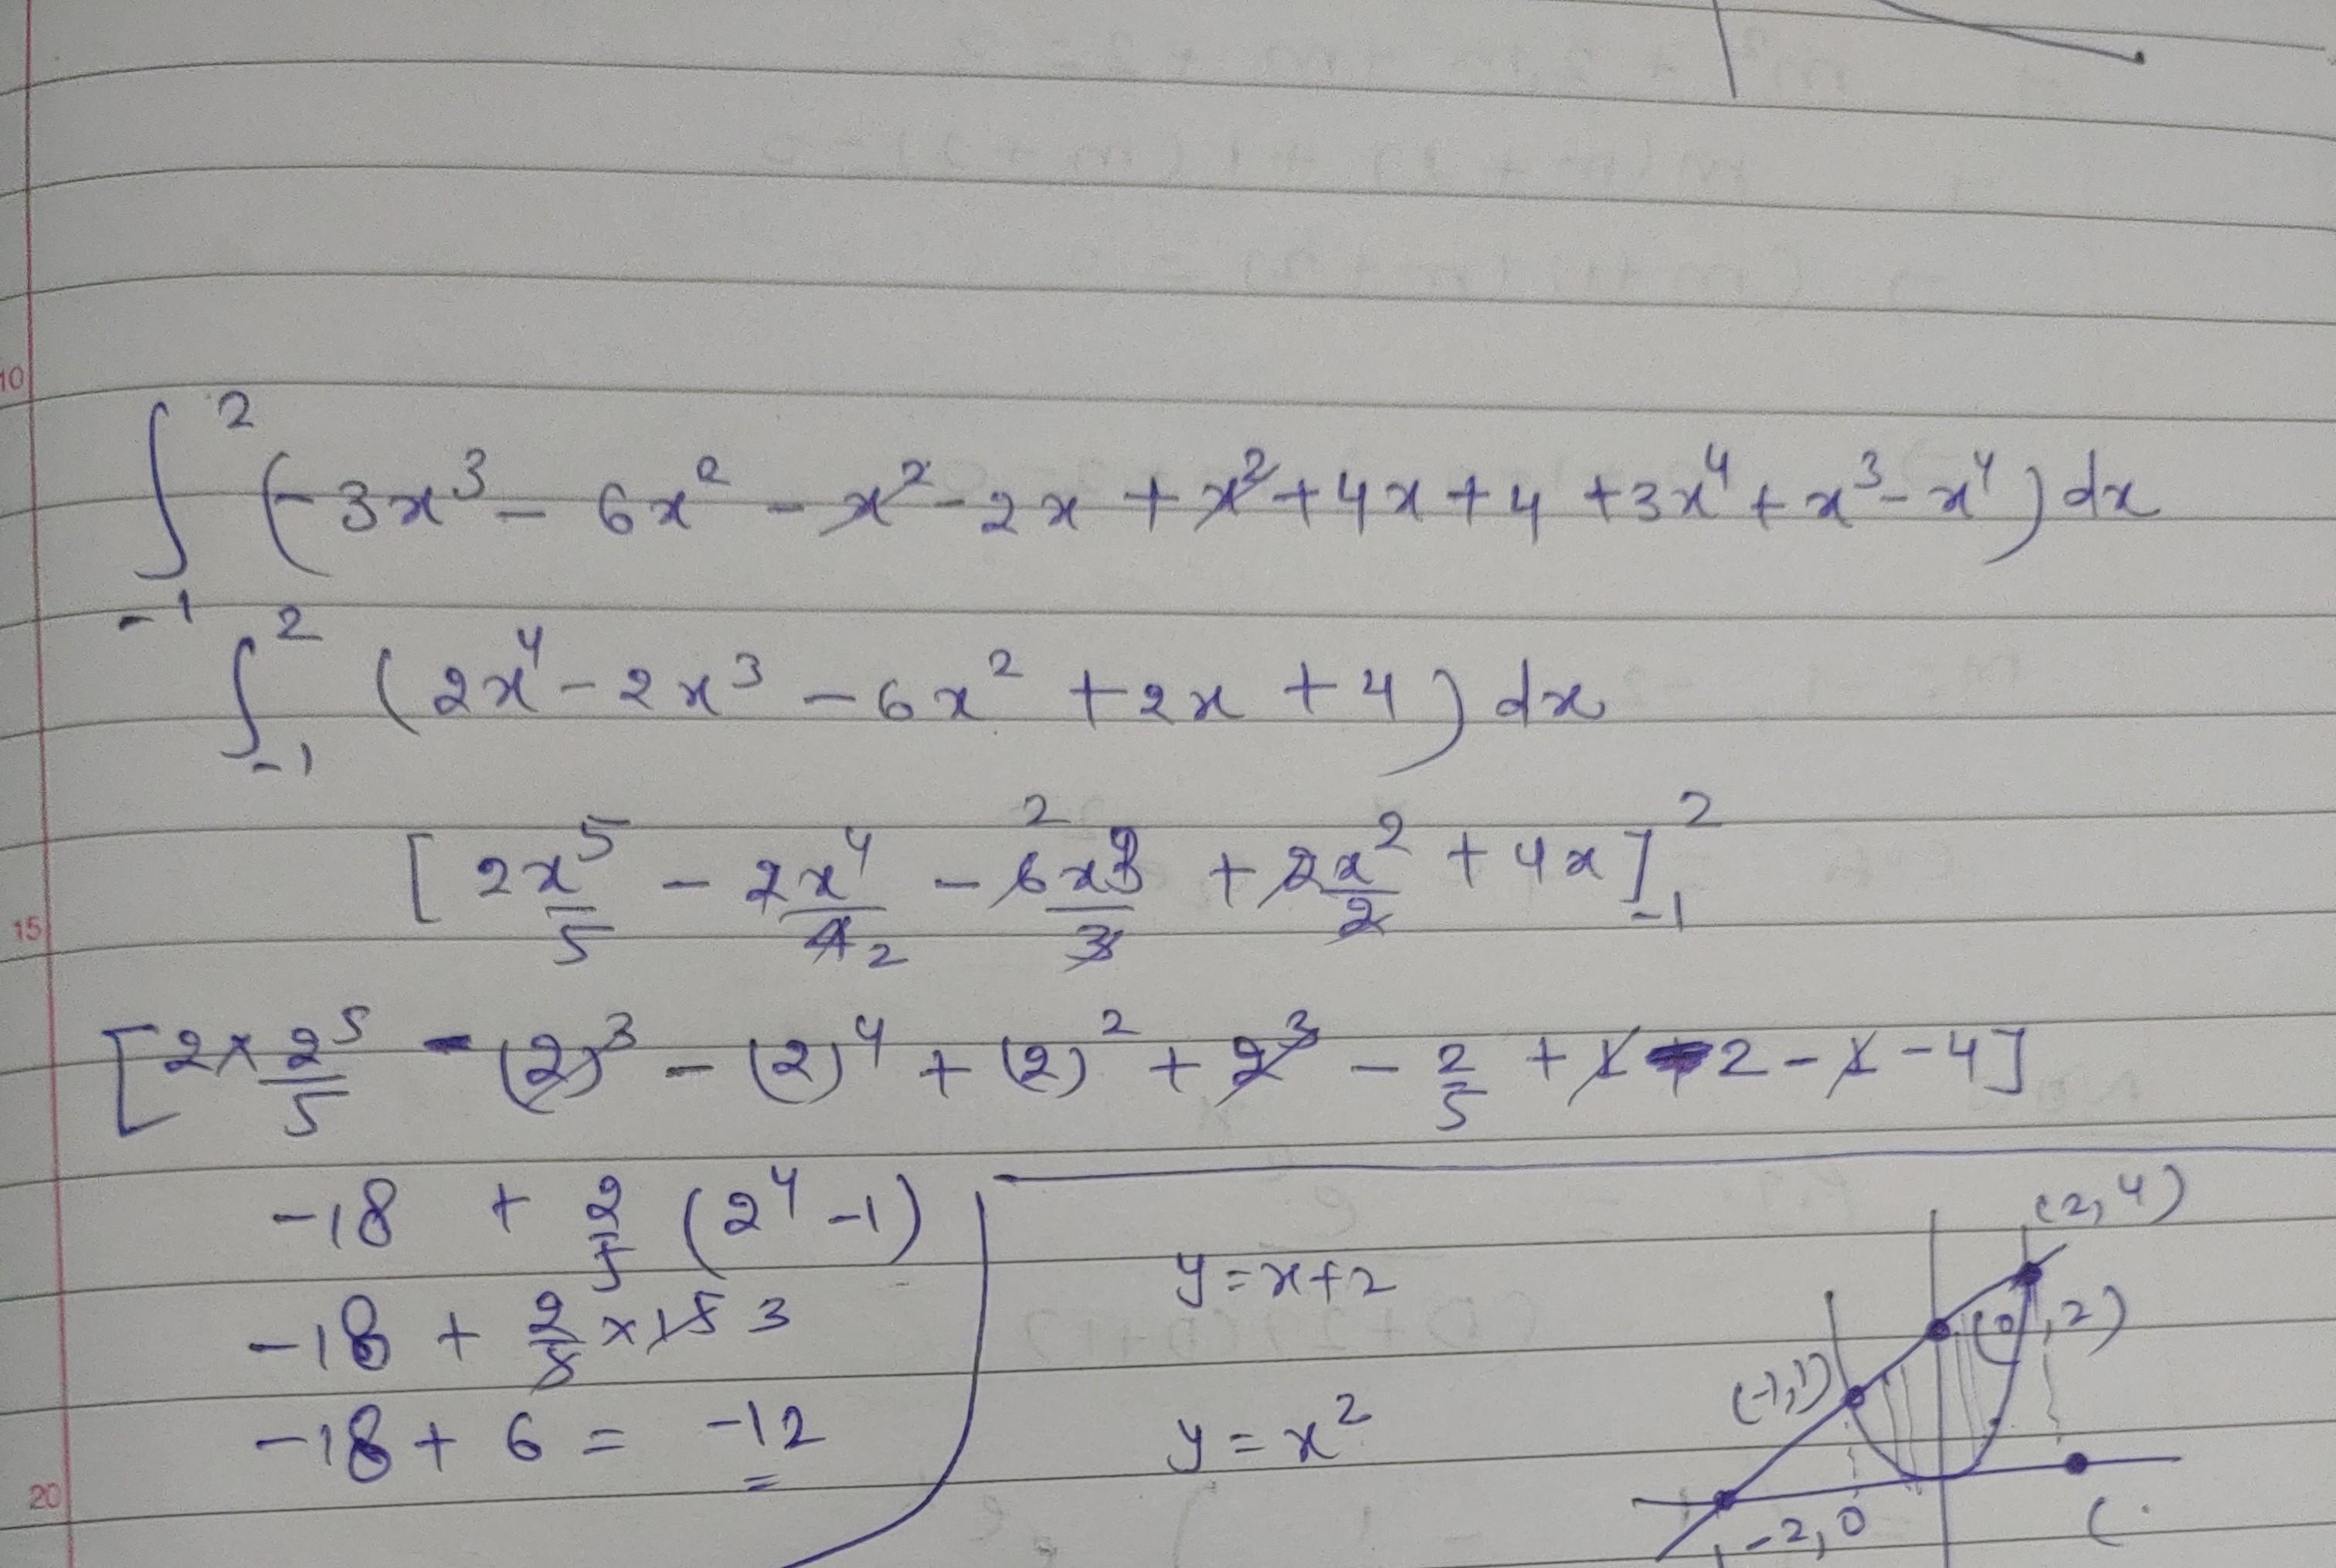 10
∫₋₁² (-3x³ - 6x² - x² - 2x + x² + 4x + 4 + 3x⁴ + x³ - x⁴) dx
∫₋₁² (2x⁴ - 2x³ - 6x² + 2x + 4) dx
[2x⁵/5 - 2x⁴/4 2 - 2 6x³/3 + 2x²/2 + 4x]₋₁²
15
[2×2⁵/5 - (2)³ - (2)⁴ + (2)² + 2³ - 2/5 + 1 2 - 1 - 4]
-18 + 2/5 (2⁴ - 1)
-18 + 2/5 × 15 3
-18 + 6 = -12
20
y = x+2
y = x²
(2, 4)
(0, 2)
(-1, 1)
-2, 0
(